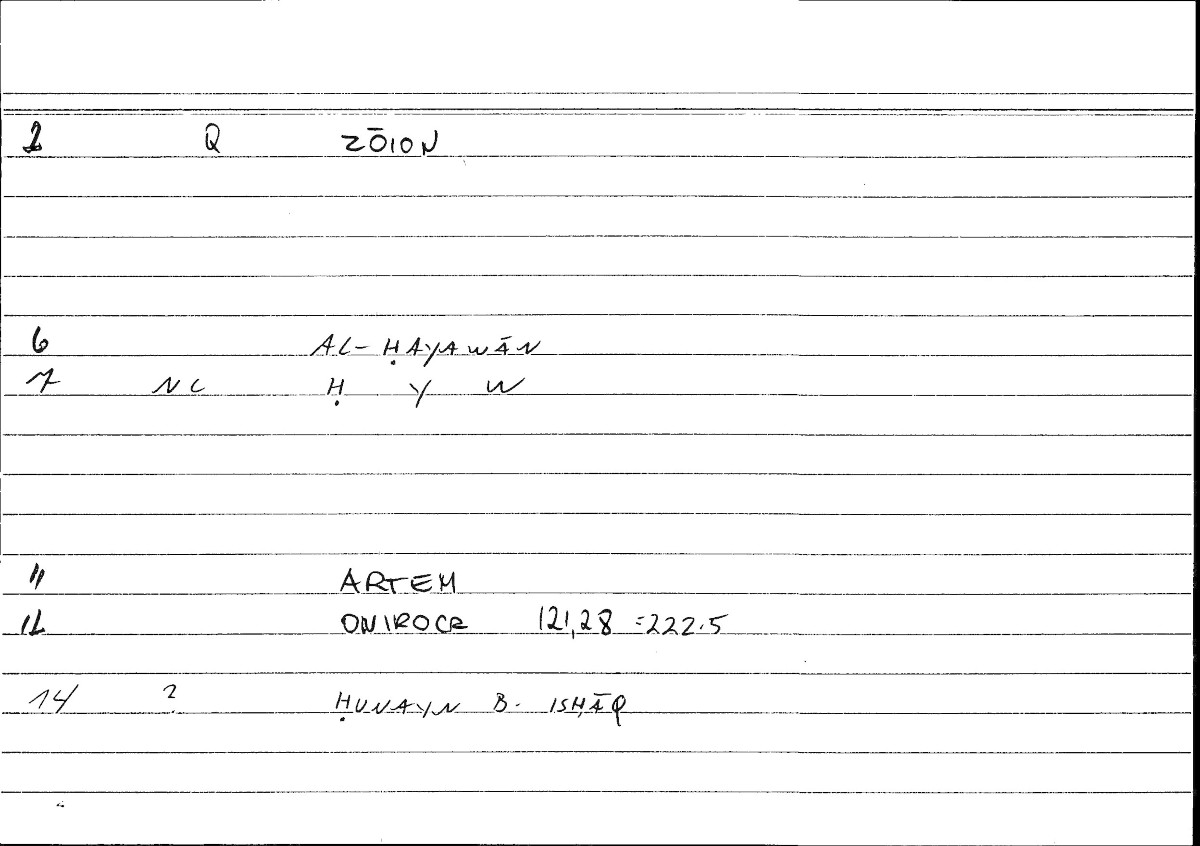 1 Q ZŌION
6 AL-ḤAYAWĀN
7 NC Ḥ Y W
11 ARTEM
12 ONIROCR 121,28 =222.5
14 ? ḤUNAYN B. ISḤĀQ